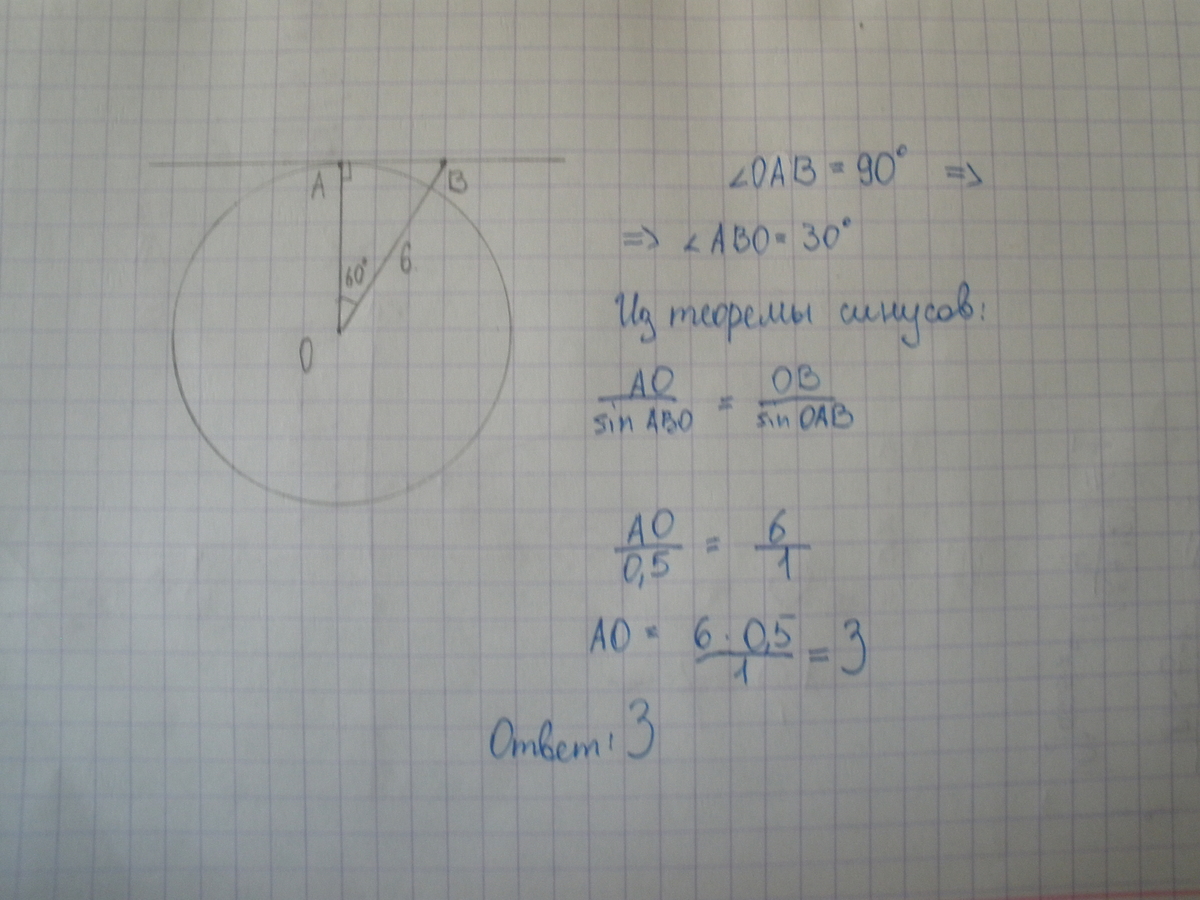 A
B
60°
6
O
∠OAB = 90° =>
=> ∠ABO = 30°
Из теоремы синусов:
AO / sin ABO = OB / sin OAB
AO / 0,5 = 6 / 1
AO = 6 · 0,5 / 1 = 3
Ответ: 3